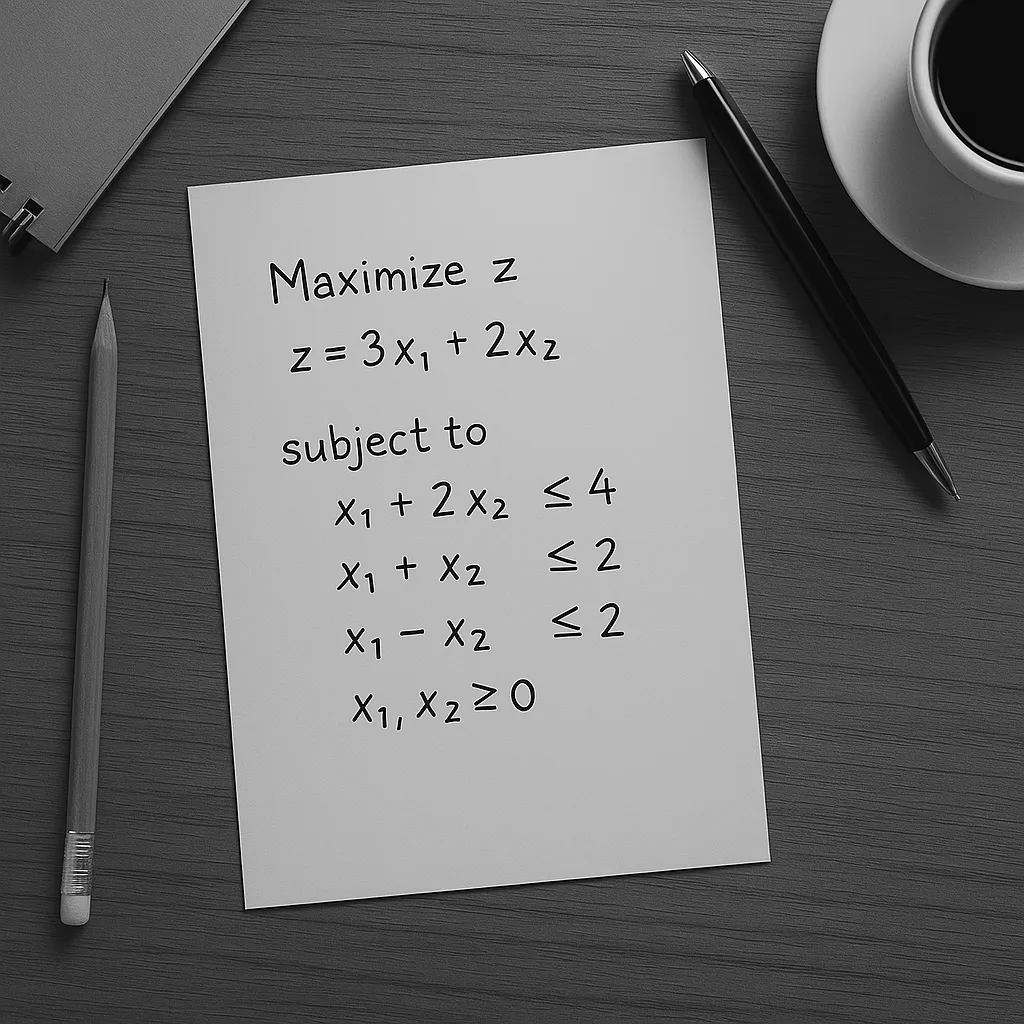 Maximize z
z = 3x₁ + 2x₂
subject to
x₁ + 2x₂ ≤ 4
x₁ + x₂ ≤ 2
x₁ − x₂ ≤ 2
x₁, x₂ ≥ 0